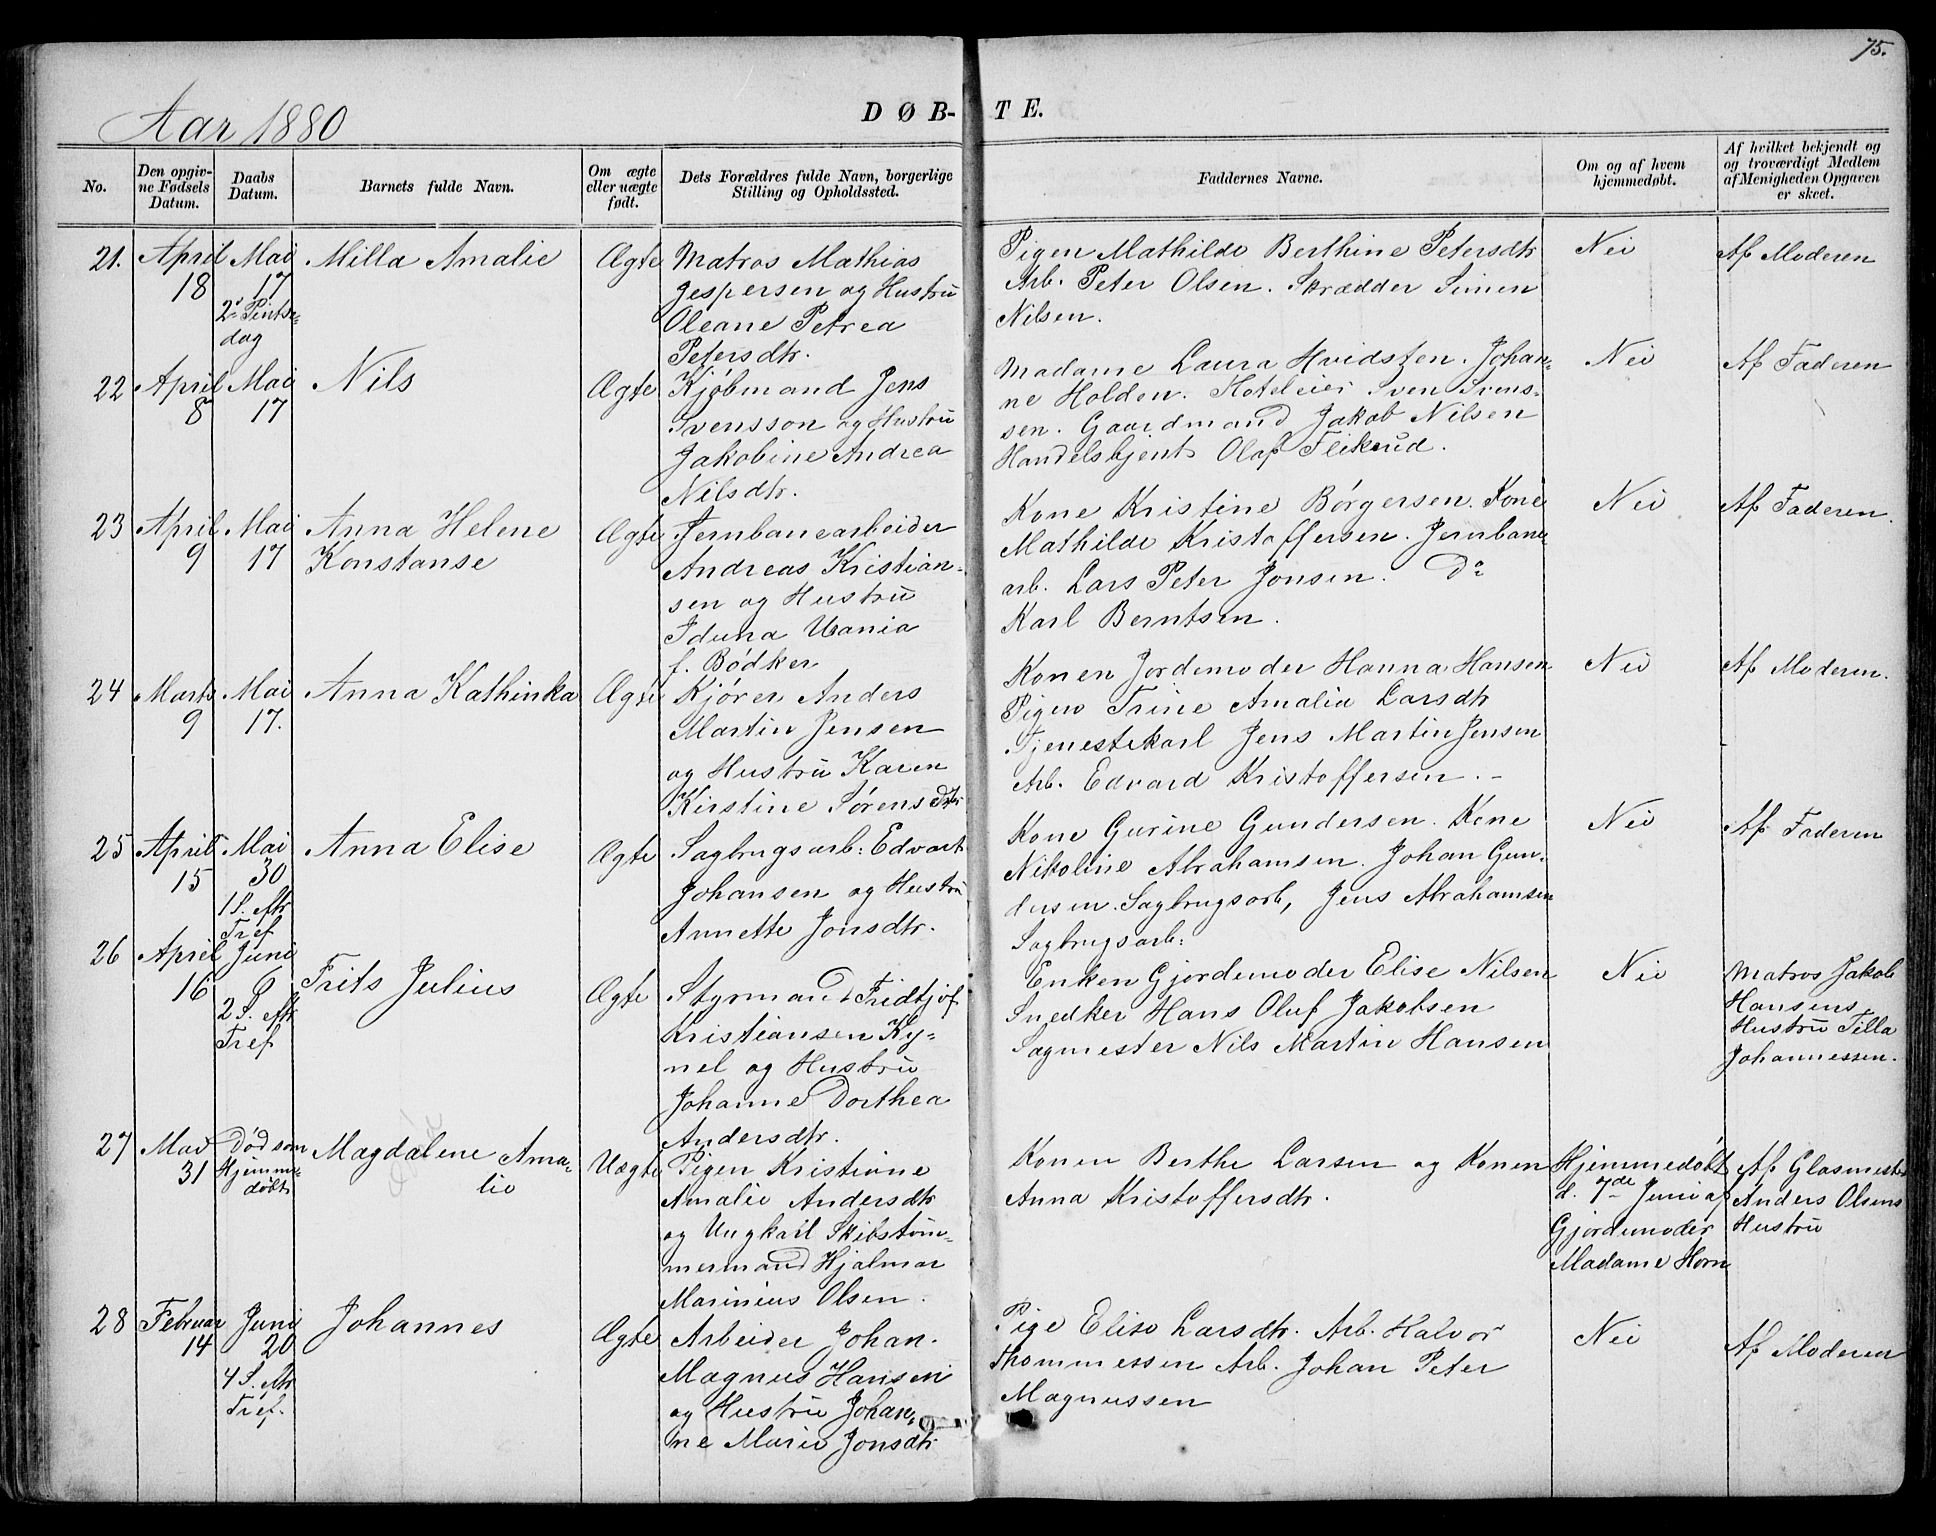 75.
Aar 1880
DØB-TE.
No.
Den opgiv-
ne Fødsels
Datum.
Daabs
Datum.
Barnets fulde Navn.
Om ægte
eller uægte
født.
Dets Forældres fulde Navn, borgerlige
Stilling og Opholdssted.
Faddernes Navne.
Om og af hvem
hjemmedøbt.
Af hvilket bekjendt og
og troværdigt Medlem
af Menigheden Opgaven
er skeet.
21.
April
18
Mai
17
2. Pintse-
dag
Milla Amalie
Ægte
Matros Mathias
Jespersen og Hustru
Oleane Petrea
Petersdtr.
Pigen Mathilde Berthine Petersdtr
Arb. Peter Olsen. Skrædder Simen
Nilsen.
Nei
Af Moderen
22
April
8
Mai
17
Nils
Ægte
Kjøbmand Jens
Svensson og Hustru
Jakobine Andrea
Nilsdtr.
Madame Laura Hvidsten. Johan-
ne Holden. Hoteleier Sven Svens-
sen. Gaardmand Jakob Nilsen
Handelsbjent Olaf Flikerud.
Nei
Af Faderen
23
April
9
Mai
17
Anna Helene
Konstanse
Ægte
Jernbanearbeider
Andreas Kristian-
sen og Hustru
Iduna Urania
f. Bødker
Kone Kristine Børgersen. Kone
Mathilde Kristoffersen. Jernbane
arb. Lars Peter Jonsen. Do
Karl Berntsen.
Nei
Af Faderen.
24
Marts
9
Mai
17.
Anna Kathinka
Ægte
Kjører Anders
Martin Jensen
og Hustru Karen
Kirstine Sørensdtr
Konen Jordemoder Hanna Hansen
Pigen Trine Amalia Larsdtr
Tjenestekarl Jens Martin Jensen
Arb. Edvard Kristoffersen.-
Nei
Af Moderen.
25
April
15
Mai
30
1 S. eftr
Tref
Anna Elise
Ægte
Sagbrugsarb: Edvart
Johansen og Hustru
Annette Jonsdtr.
Kone Gurine Gundersen. Kone
Nikoline Abrahamsen. Johan Gun-
dersen. Sagbrugsarb, Jens Abrahamsen
Sagbrugsarb:
Nei
Af Faderen
26
April
16
Juni
6
2 S. eftr
Tref
Frits Julius
Ægte
Styrmand Fridtjof
Kristiansen Ky-
nel og Hustru
Johanne Dorthea
Andersdtr.
Enken Gjordemoder Elise Nilsen
Snedker Hans Oluf Jakobsen
Sagmester Nils Martin Hansen
Nei
Matros Jakob
Hansens
Hustru Tilla
Johannessen.
27
Mai
31
Død som
Hjemme-
døbt
Magdalene Ama-
lie
Uægte
Pigen Kristiane
Amalie Andersdtr
og Ungkarl Skibstøm-
mermand Hjalmar
Marinius Olsen.
Konen Berthe Larsen og Konen
Anna Kristoffersdtr.
Hjemmedøbt
d. 7de Juni af
Gjordemoder
Madame Horn
Af Glasmester
Anders Olsens
Hustru
28
Februar
14
Juni
20
4 S. eftr
Tref.
Johannes
Ægte
Arbeider Johan
Magnus Hansen
og Hustru Johan-
ne Marie Jonsdtr
Pige Elise Larsdtr. Arb. Halvor
Thommessen Arb. Johan Peter
Magnussen
Nei
Af Moderen